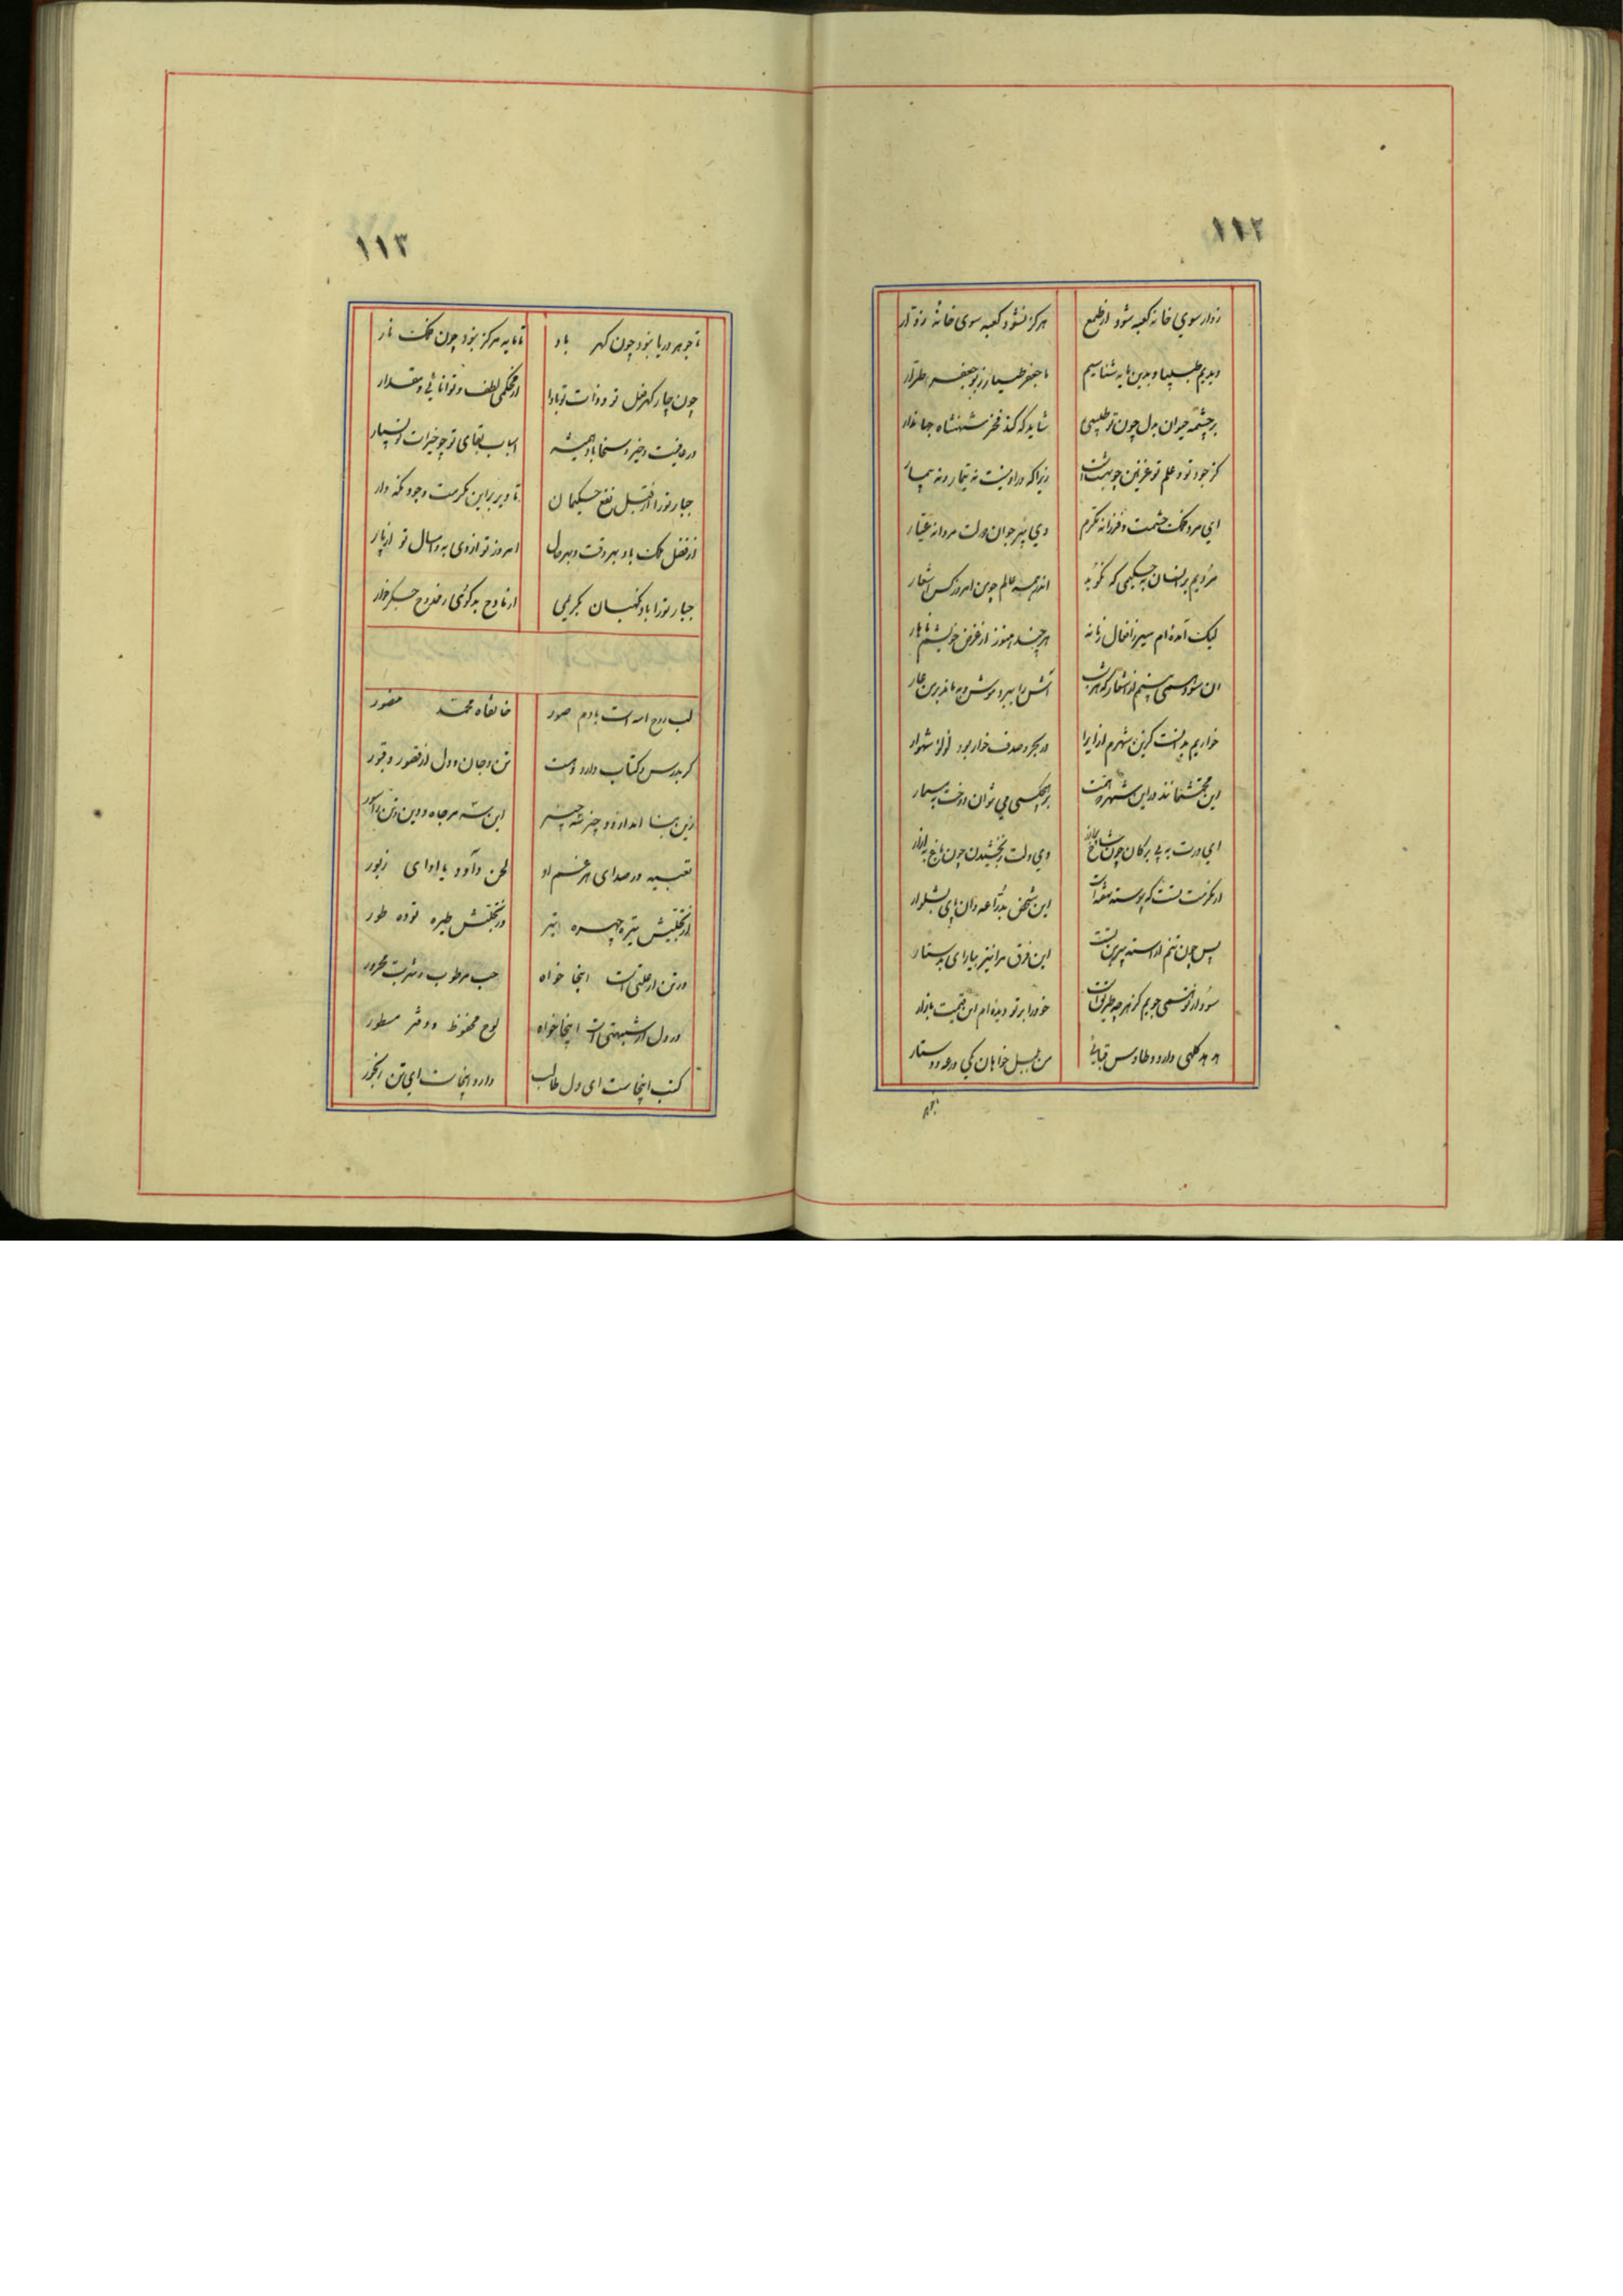 ۱۱۲
زوار سوی خانه کعبه شود از طمع هرگز نشود کعبه سوی خانه زوار
دیدیم طبیبا و بدین مایه شناسیم با جعفر طیار ز بو جعفر طرار
بر چشمه حیوان بدل چون تو طبیبی شاید که کند فخر شهنشاه جهاندار
کز جود تو و علم تو غزنین چو بهشت است زیرا که درو نیست نه تیمار و نه بیمار
ای مرد فلک حشمت و فرزانه مکرم وی پیر جوان دولت مردانه عیار
هر دیم بر انسان به حکیمی که نگوید اندر همه عالم چو من امروز کس اشعار
لیک آمده ام سیر ز افعال زمانه هر چند هنوز از غرض خویشم ناهار
آن سود همی بینم از اشعار که هر شب آتش را ببرد موش و به ماند بر من عار
خواریم بدانست کزین شهرم ازیرا در بحر و صدف خوار بود لولو شهوار
این محتشمانند درین شهر و همت بر هیچ کسی می نتوان دوخت به مسمار
ای درت به بی برگان چون شاخ وی دلت ببخشیدن چون باغ به آذار
از مکرمت تست که پیوسته نهفته است این شخص به دراعه و آن پای به شلوار
پس چون تنم آراسته پیرهن تست این فرق مرا نیز بیارای به دستار
سود از تو نمی جویم کز هر چه طریق است خود را بر تو دیده ام این قیمت بازار
هدهد کلهی دارد و طاوس قبایی من بلبل خواهان یکی درعه و دستار
۱۱۳
تا جوهر دریا نبود چون گهر باد تا مایه مرکز نبود چون فلک نار
چون چار گهر فعل تو و ذات تو بادا از محکمی و لطف و توانایی و مقدار
در عافیت و خیر و سخا باد همیشه اسباب بقای تو چو خیرات تو بسیار
جبار تو را از قبل نفع حکیمان تا دیر برین مکرمت و جود نگه دار
از فضل ملک باد بهر وقت و بهر حال امروز تو از دی به و امسال تو از پار
جبار تو را باد نگهبان بکریمی از مادح بدگوی و ز ممدوح جگرخوار
لب روح الله است یا دم صور خانقاه محمد منصور
که بدرس و کتاب دارد دست تن و جان و دل از قصور و قبور
زین بنا اندرو دو چیز شده چیز این سه مر جاه و دین و تن را سور
تعبیه در صدای هر غنم او لحن داود با ادای زبور
از تجلیش تیره چهره تیر در تجلیش طیره توده طور
در تن ار علتی است اینجا خواه حب مرطوب و شربت محرور
در دل ار شبهتی است اینجا خواه لوح محفوظ و دفتر مسطور
کتب اینجاست ای دل طالب دارو اینجاست ای تن رنجور